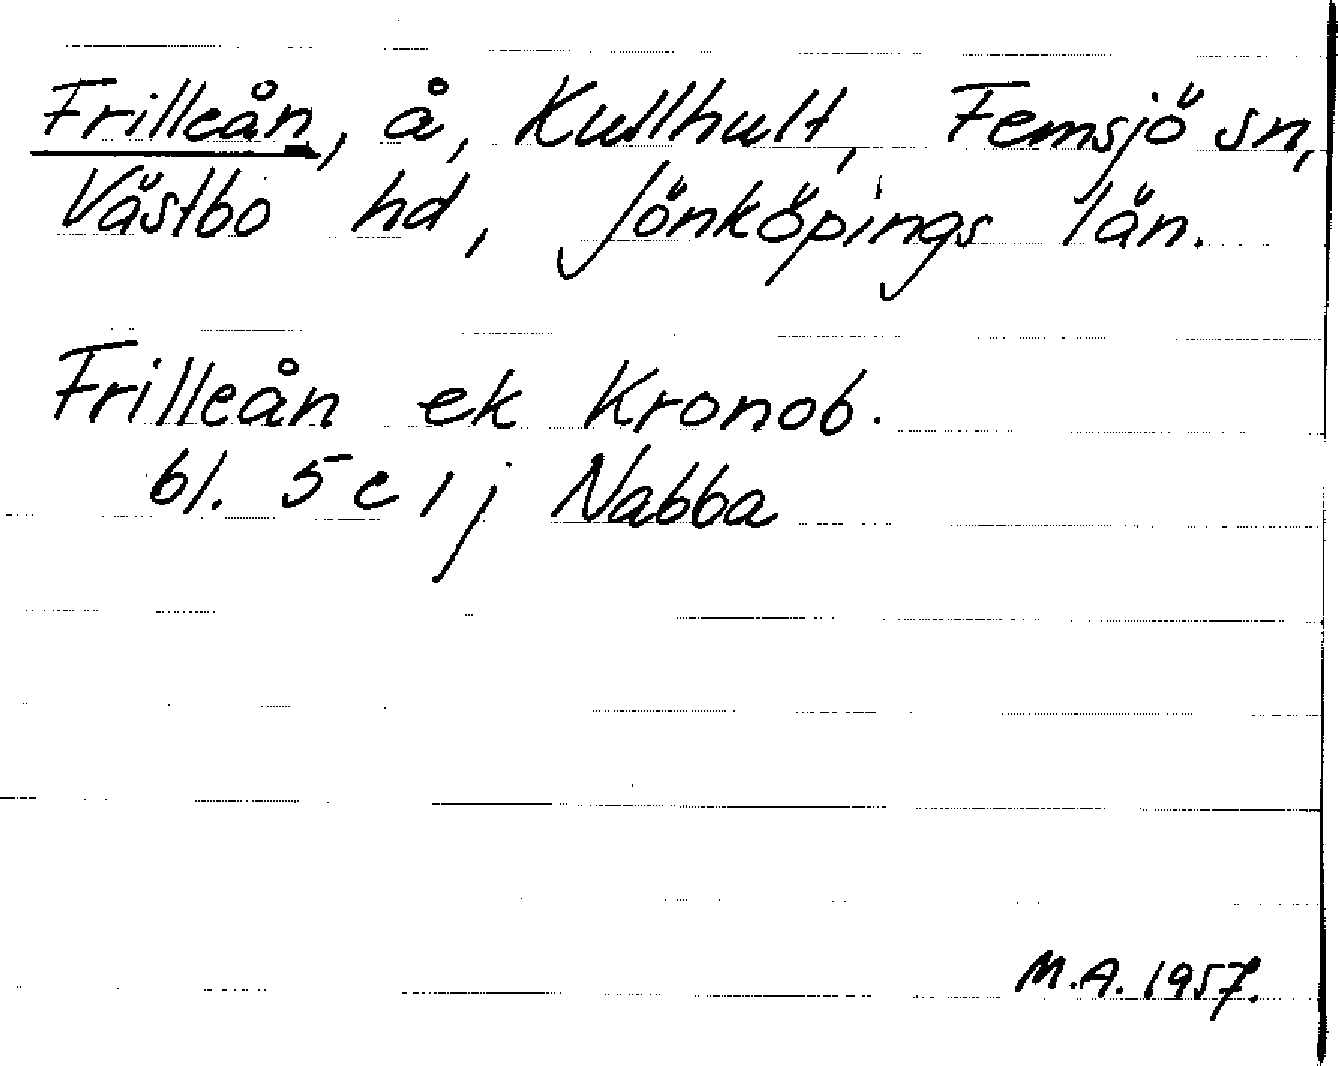 Frilleån, å, Kullhult, Femsjö sn,
Västbo hd, Jönköpings län.
Frilleån ek Kronob.
bl. 5 c 1 j Nabba
M.A. 1957.